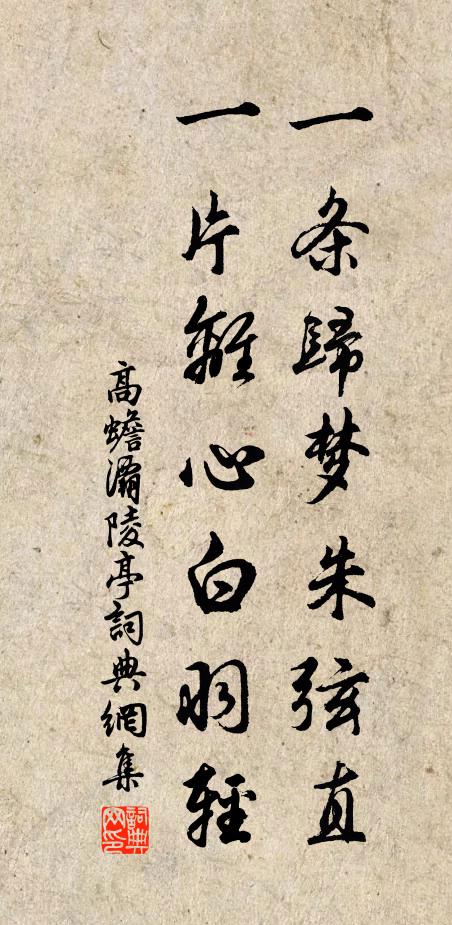 一条歸梦朱弦直
一片離心白羽輕
高蟾灞陵亭詞典網集
詞典网印